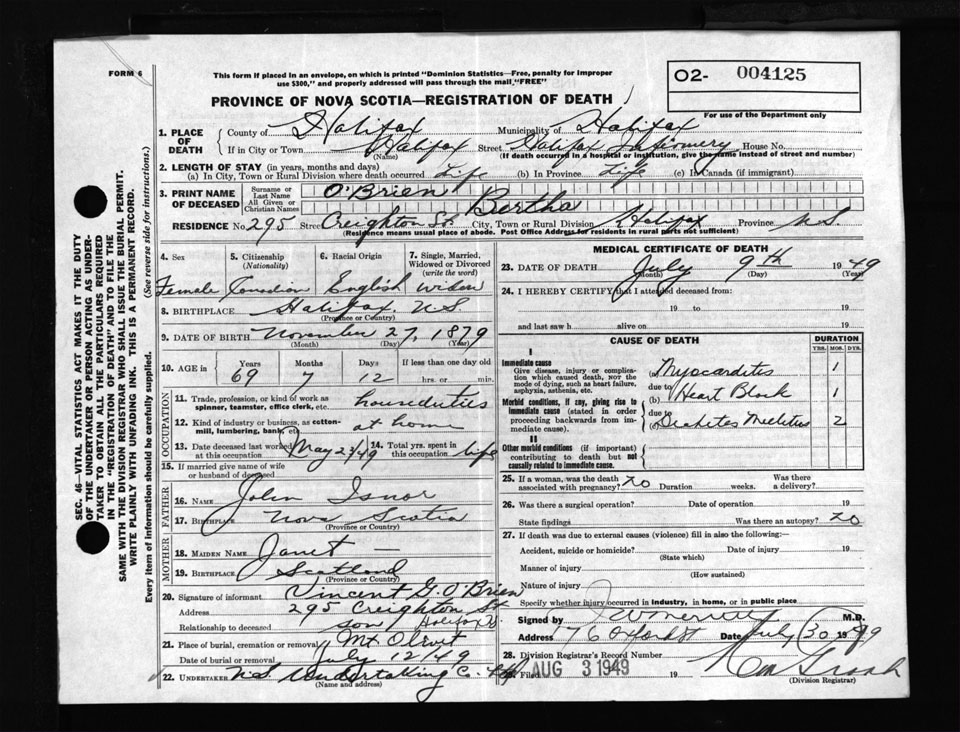 FORM 6
This form if placed in an envelope, on which is printed "Dominion Statistics—Free, penalty for improper
use $300," and properly addressed will pass through the mail, "FREE"
O2- 004125
For use of the Department only
PROVINCE OF NOVA SCOTIA—REGISTRATION OF DEATH
1. PLACE OF DEATH
County of Halifax Municipality of Halifax
If in City or Town Halifax Street Halifax Infirmery House No.
(Name) (If death occurred in a hospital or institution, give the name instead of street and number)
2. LENGTH OF STAY (in years, months and days)
(a) In City, Town or Rural Division where death occurred Life (b) In Province Life (c) In Canada (if immigrant)
3. PRINT NAME OF DECEASED
Surname or Last Name O'Brien
All Given or Christian Names Bertha
RESIDENCE No. 295 Street Creighton St. City, Town or Rural Division Halifax Province N.S.
(Residence means usual place of abode. Post Office Address for residents in rural parts not sufficient)
4. Sex 5. Citizenship (Nationality) 6. Racial Origin 7. Single, Married, Widowed or Divorced (write the word)
Female Canadian English widow
8. BIRTHPLACE Halifax, N.S.
(Province or Country)
9. DATE OF BIRTH November 27, 1879
(Month) (Day) (Year)
10. AGE in Years Months Days If less than one day old
69 7 12 hrs. or min.
OCCUPATION
11. Trade, profession, or kind of work as spinner, teamster, office clerk, etc. houseduties
12. Kind of industry or business, as cotton-mill, lumbering, bank, etc. at home
13. Date deceased last worked at this occupation May 2/49 14. Total yrs. spent in this occupation life
15. If married give name of wife or husband of deceased
FATHER
16. NAME John Isnor
17. Birthplace Nova Scotia
(Province or Country)
MOTHER
18. MAIDEN NAME Janet —
19. BIRTHPLACE Scotland
(Province or Country)
20. Signature of informant Vincent G. O'Brien
Address 295 Creighton St.
Relationship to deceased son Halifax
21. Place of burial, cremation or removal Mt Olivet
Date of burial or removal July 12/49
22. UNDERTAKER N.S. Undertaking Co.
(Name and address)
MEDICAL CERTIFICATE OF DEATH
23. DATE OF DEATH July 9th 1949
(Month) (Day) (Year)
24. I HEREBY CERTIFY that I attended deceased from:
19 to 19
and last saw h alive on 19
CAUSE OF DEATH DURATION
YRS. MOS. DYS.
I
Immediate cause
Give disease, injury or complication which caused death, NOT the mode of dying, such as heart failure, asphyxia, asthenia, etc.
(a) Myocarditis 1
due to
Morbid conditions, if any, giving rise to immediate cause (stated in order proceeding backwards from immediate cause).
(b) Heart Block 1
due to
Diabetes Mellitus 2
II
Other morbid conditions (if important) contributing to death but not causally related to immediate cause.
25. If a woman, was the death associated with pregnancy? no Duration weeks. Was there a delivery?
26. Was there a surgical operation? Date of operation 19
State findings Was there an autopsy? no
27. If death was due to external causes (violence) fill in also the following:
Accident, suicide or homicide? Date of injury 19
(State which)
Manner of injury
(How sustained)
Nature of injury
Specify whether injury occurred in industry, in home, or in public place
Signed by M.D.
Address 76 Oxford St Date July 30 1949
28. Division Registrar's Record Number
Filed AUG 3 1949 19
(Division Registrar)
SEC. 46—VITAL STATISTICS ACT MAKES IT THE DUTY
OF THE UNDERTAKER OR PERSON ACTING AS UNDER-
TAKER TO OBTAIN ALL THE PARTICULARS REQUIRED
IN THE "REGISTRATION OF DEATH" AND TO FILE THE
SAME WITH THE DIVISION REGISTRAR WHO SHALL ISSUE THE BURIAL PERMIT.
WRITE PLAINLY WITH UNFADING INK. THIS IS A PERMANENT RECORD.
Every item of information should be carefully supplied. (See reverse side for instructions.)